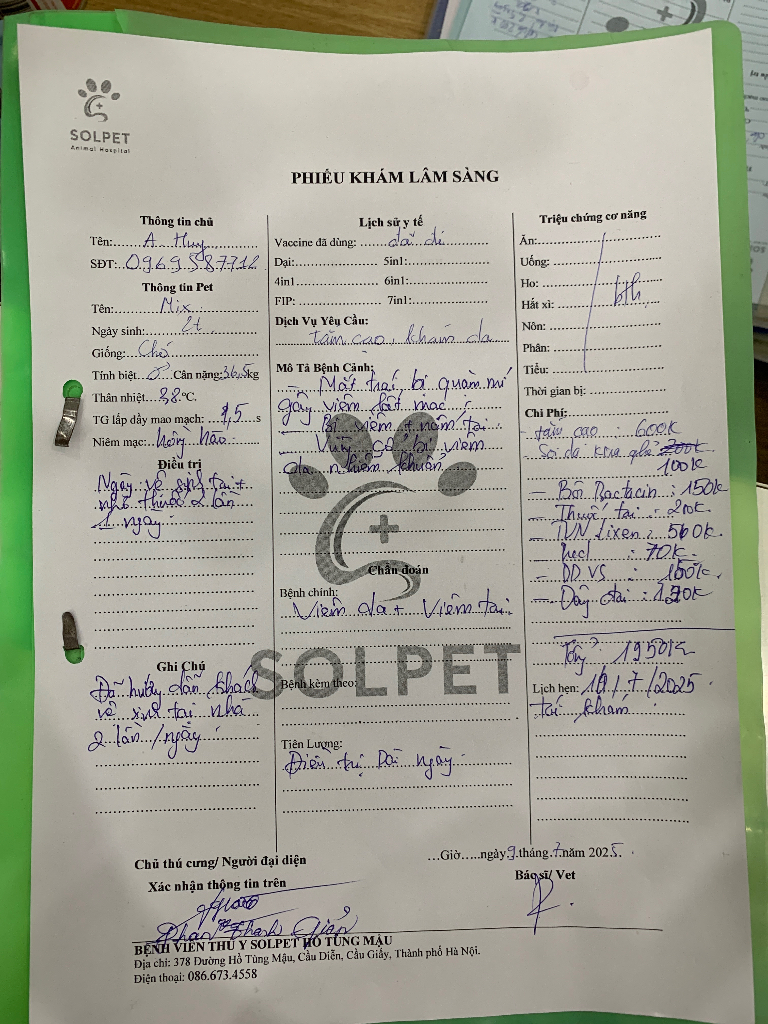 SOLPET
Animal Hospital
PHIẾU KHÁM LÂM SÀNG
Thông tin chủ
Tên: A Huy
SĐT: 0969587712
Thông tin Pet
Tên: Mix
Ngày sinh: 2t
Giống: Chó
Tính biệt ♂ Cân nặng: 36,5kg
Thân nhiệt 38 °C.
TG lấp đầy mao mạch: 1,5 s
Niêm mạc: hồng hào
Điều trị
Ngày vệ sinh tai +
nhỏ thuốc 2 lần
1 ngày.
Ghi Chú
Đã hướng dẫn khách
vệ sinh tại nhà
2 lần / ngày
Lịch sử y tế
Vaccine đã dùng:
Dại: 5in1:
4in1 6in1:
FIP: 7in1:
Dịch Vụ Yêu Cầu:
tắm cạo, khám da
Mô Tả Bệnh Cảnh:
- Mắt trái bị quặm mí
gây viêm kết mạc
- Bị viêm + nấm tai
- Vùng cổ bị viêm
da nhiễm khuẩn
Chẩn đoán
Bệnh chính:
Viêm da + Viêm tai.
SOLPET
Bệnh kèm theo:
Tiên Lượng:
Điều trị Dài ngày.
Triệu chứng cơ năng
Ăn:
Uống:
Ho:
Hắt xì: bth
Nôn:
Phân:
Tiểu:
Thời gian bị:
Chi Phí:
- tắm cạo : 600k
- Soi da 100k
- Bôi Bactacin : 150k
- Thuốc tai : 200k
- : 560k.
- hecl : 70k.
- DD VS : 150k.
- : 120k
Tổng 1950k
Lịch hẹn: 19/7/2025
tái khám
Chủ thú cưng/ Người đại diện
Xác nhận thông tin trên
…Giờ…..ngày 9.tháng.7.năm 2025.
Bác sĩ/ Vet
BỆNH VIỆN THÚ Y SOLPET HỒ TÙNG MẬU
Địa chỉ: 378 Đường Hồ Tùng Mậu, Cầu Diễn, Cầu Giấy, Thành phố Hà Nội.
Điện thoại: 086.673.4558